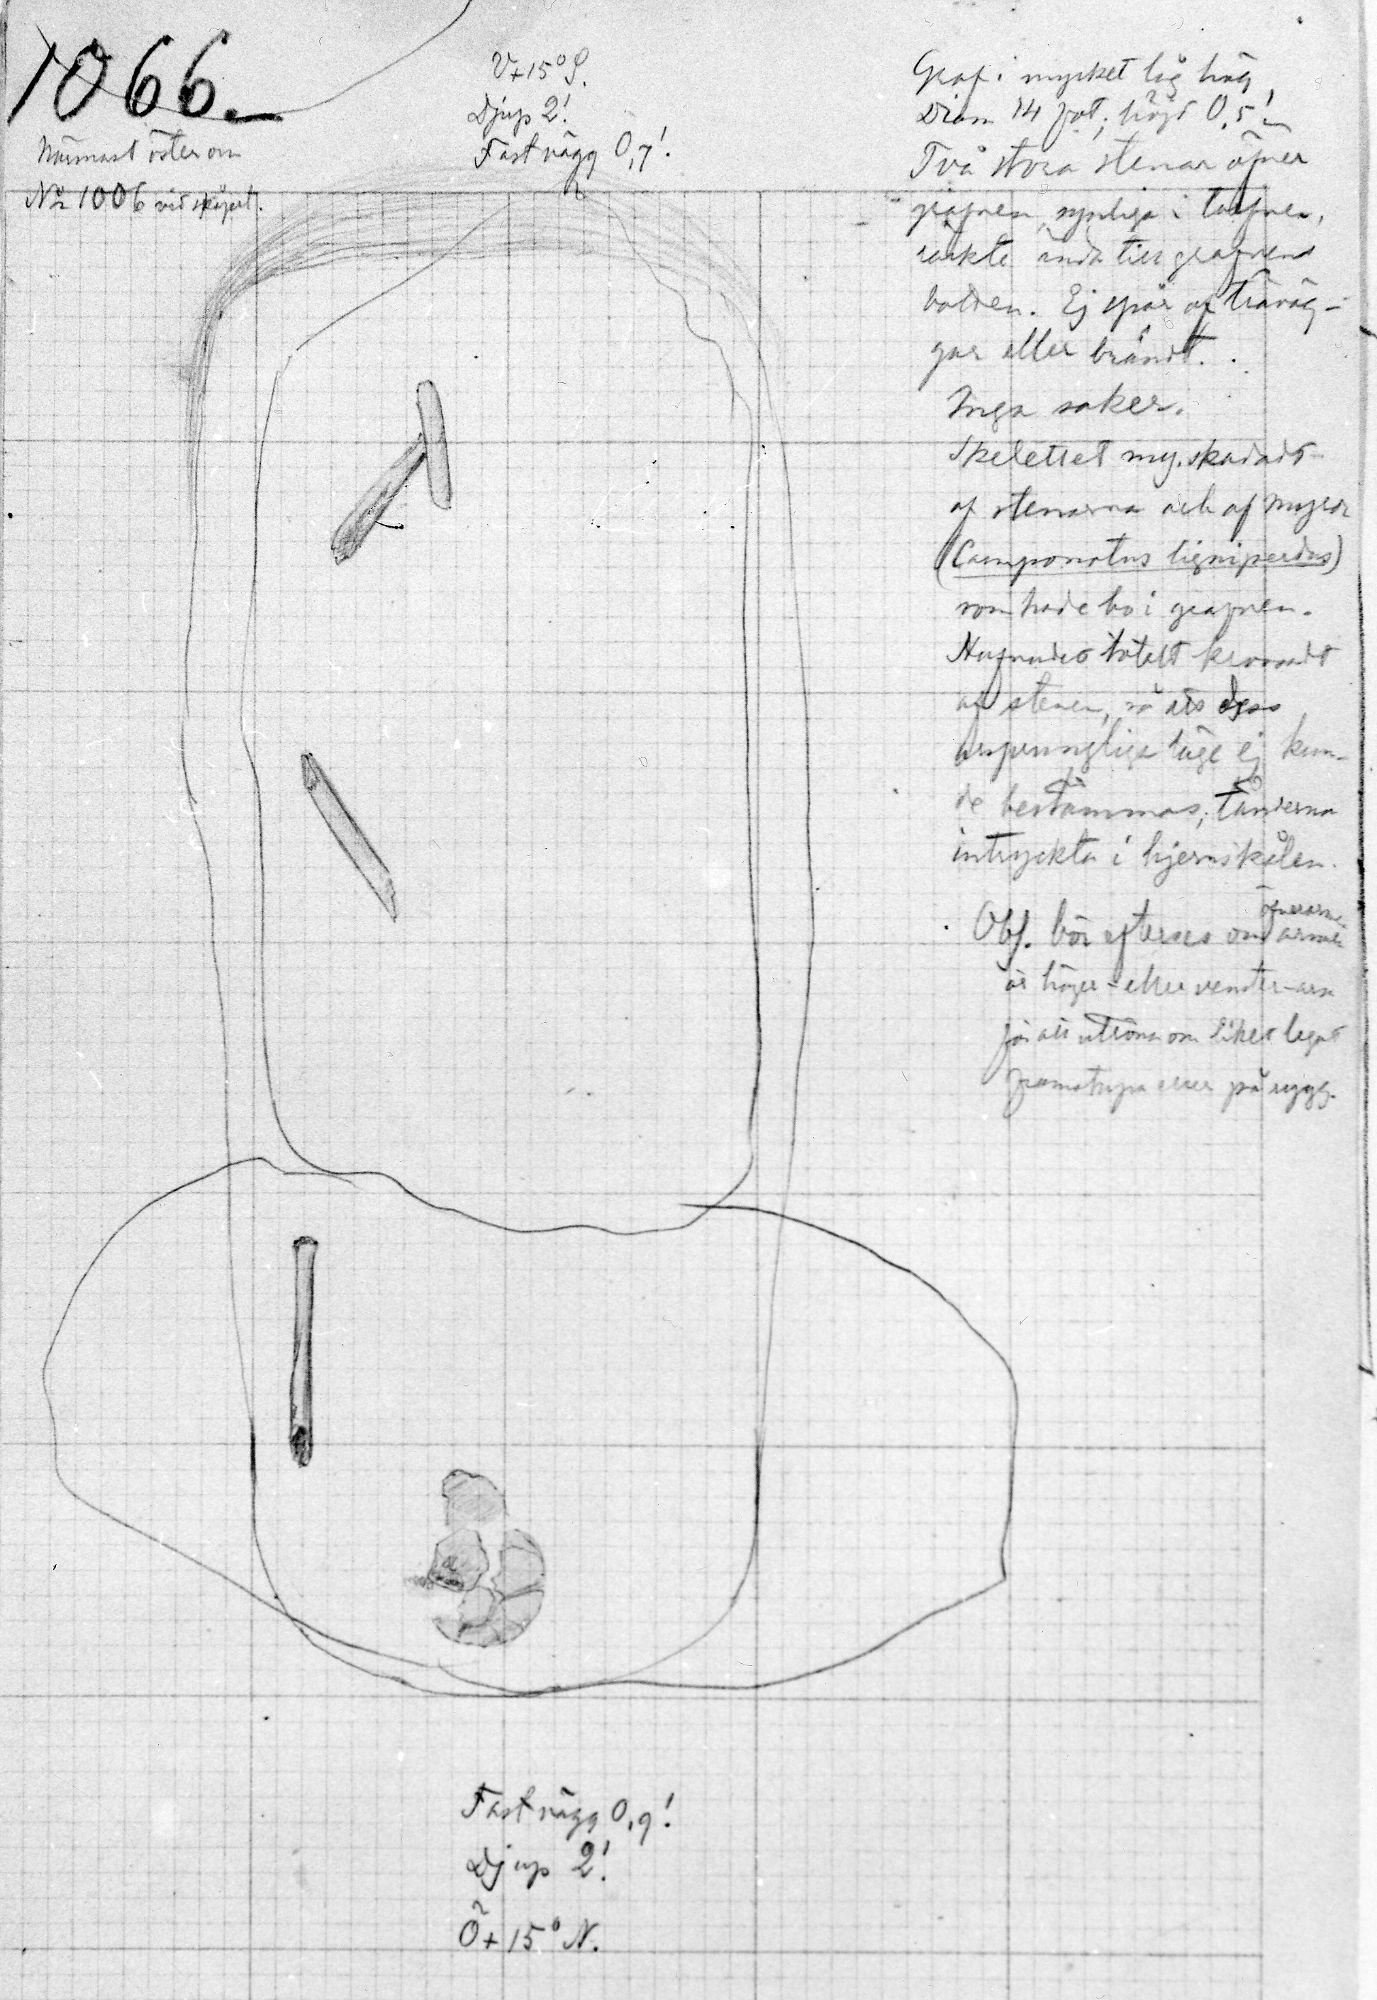 1066.
Närmast öster om
No 1006 vid skåpet.
V+15° S.
Djup 2!
Fast vägg 0,7!
Graf i mycket låg hög
Diam 14 fot; höjd 0,5!
Två stora stenar öfver
grafven, synliga i torfven,
räckte ända till grafvens
botten. Ej spår af träväg-
gar eller brändt.
Inga saker.
Skelettet my. skadadt
af stenarna och af myror
(Camponotus ligniperdus)
som hade bo i grafven.
Hufvudet totalt krossadt
af stenen, så att dess
ursprungliga läge ej kun-
de bestämmas; tänderna
intryckta i hjernskålen.
Obs. bör efterses om öfverarmen
är höger- eller venster-arm
för att utröna om liket legat
framstupa eller på rygg.
Fast vägg 0,9!
Djup 2!
Ö+15° N.